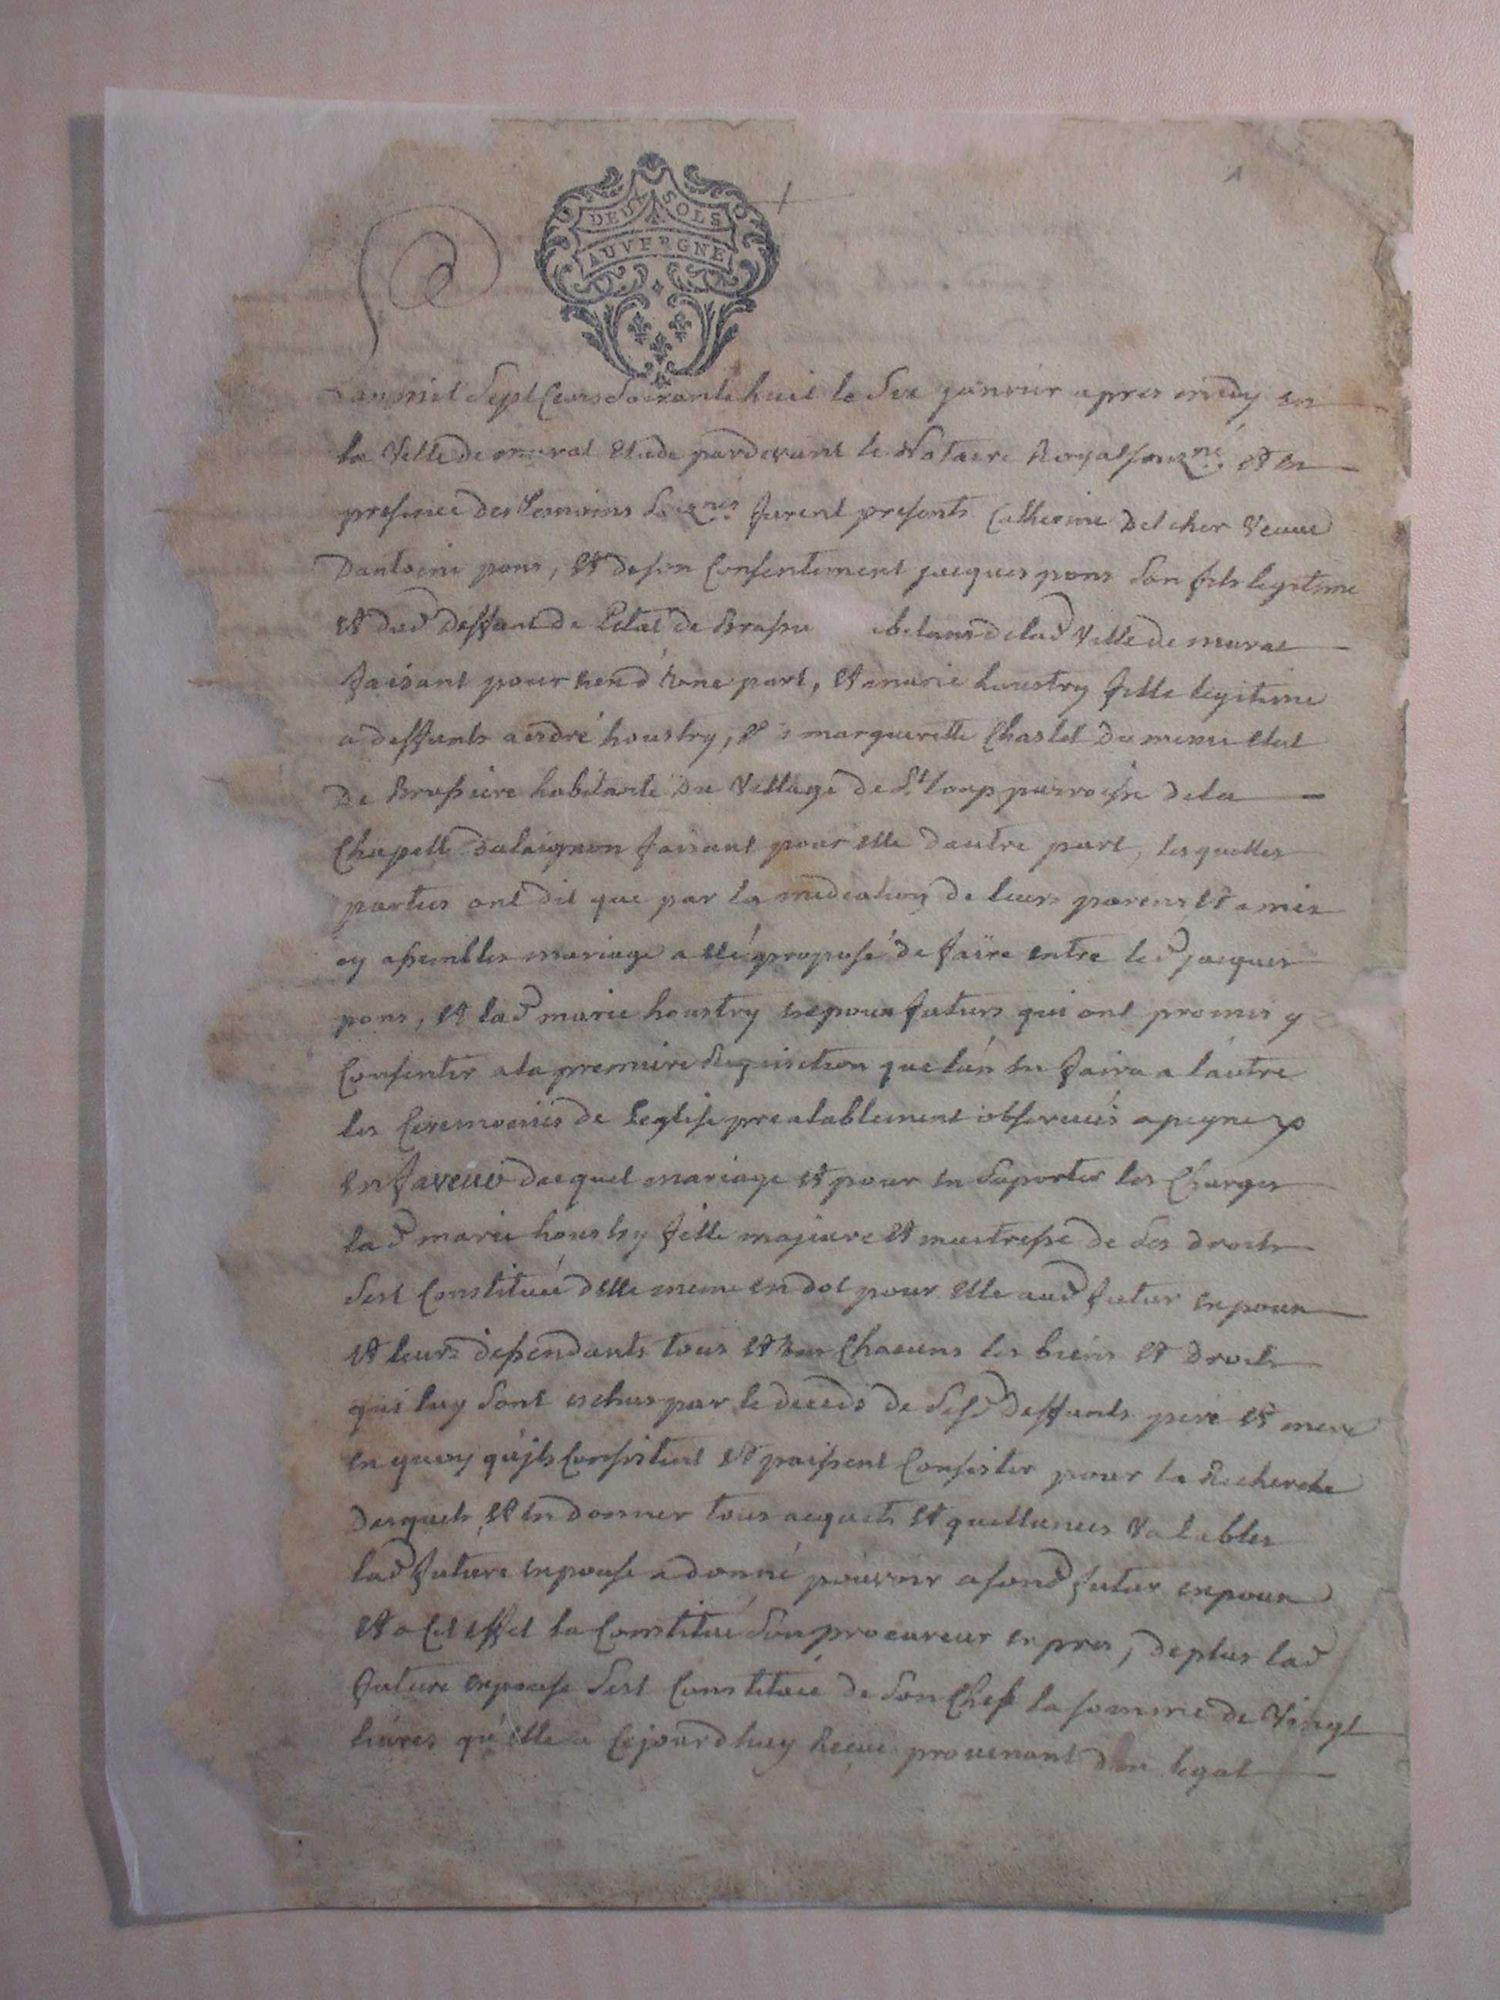 1
DEUX SOLS
AUVERGNE
Lan mil sept Cens Soixante huit le six janvier apres midy en
la Ville de murat Etude pardevant le Notaire Royal sousné et en
presence des temoins soizgnés furent presents Catherine Delcher Veuve
Dantoine pons, et de son Consentement jacques pons son fils legitime
et dud deffunt de Letat de Brassie abitans de lad Ville de murat
faisant pour eux d'Une part, et marie houstry fille legitime
a deffunts andré houstry, et margueritte Chastel du meme etat
De Brassiere habitante du Village de St Loup parroisse de la
Chapelle dalaignon faisant pour elle dautre part, lesquelles
parties ont dit que par la mediation de leurs parens et amis
cy assembles mariage a eté proposé de faire entre led jacques
pons, et lad marie houstry expoux futurs qui ont promis y
Consentir a la premiere Requisition que lún en faira a lautre
les Ceremonies de Leglise prealablement observeés a peyne
en faveur duquel mariage et pour en suporter les Charges
lad marie houstry fille majeure et maitresse de ses droits
sest Constituée delle meme en dot pour elle aud futur expoux
et leurs dessendants tous et uns Chacuns les biens et droits
qui luy sont echus par le deceds de sesd deffunts pere et mere
en quoy qu'jls Consistent et puissent Consister pour la Recherche
desquels, et en donner tous acquets et quittances Valables
lad future expouse a donné pouvoir a sond futur expoux
et a Cet effet la Constitué son procureur expres, de plus lad
future expouse sest Constituée de son Chef la somme de Vingt
livres qu'elle a Cejourdhuy Receue provenant d'un legat